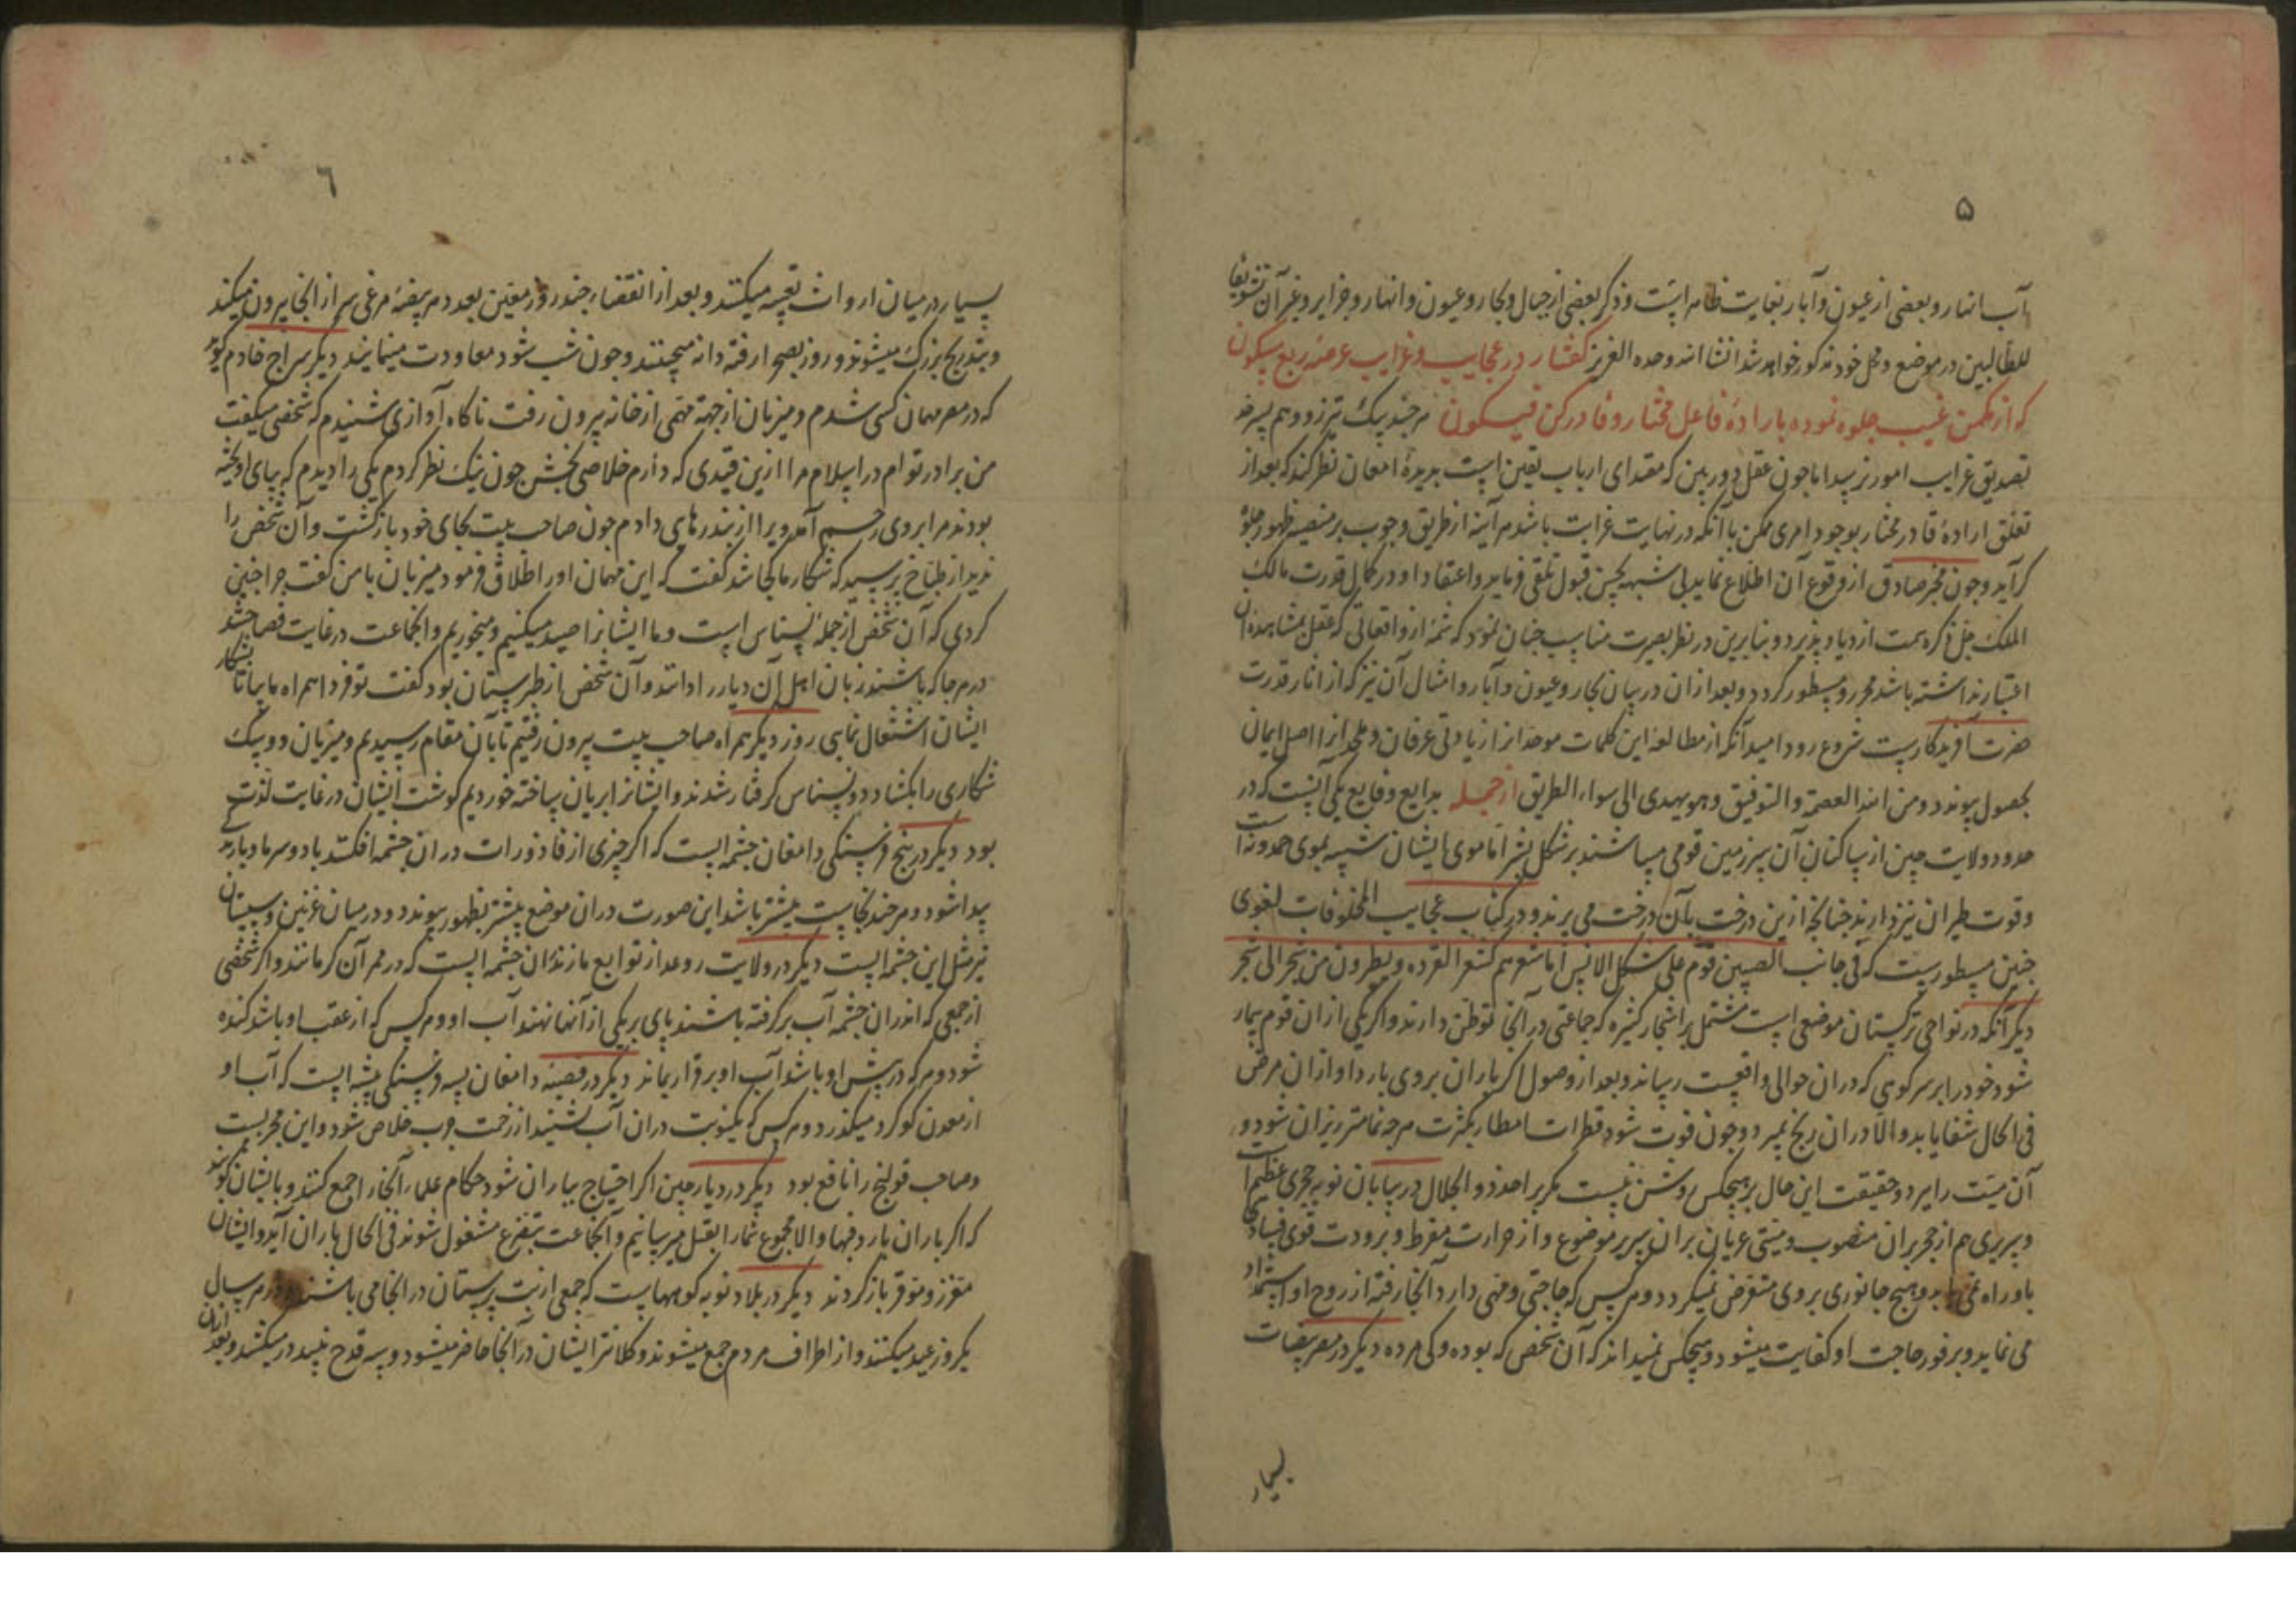 ۵
آب انهار و بعضی از عیون و آبار بغایت ظاهر است و ذکر بعضی از جبال و بحار و عیون و انهار و جزایر و غیر آن تشویقا
للطالبین در موضع و محل خود مذکور خواهد شد انشا الله وحده العزیز گفتار در عجایب و غرایب عرصه ربع مسکون
که از مکمن غیب جلوه نموده باراده فاعل مختار و قادر کن فیکون هر چند پیک تیزرو وهم بسرحد
تصدیق غرایب امور نرسد اما چون عقل دوربین که مقتدای ارباب یقین است بدیده امعان نظر کند که بعد از
تعلق اراده قادر مختار بوجود امری ممکن با آنکه در نهایت غرابت باشد هر آینه از طریق وجوب بر منصه ظهور جلوه
گر آید و چون مخبر صادق از وقوع آن اطلاع نماید بی شبهه بحسن قبول تلقی فرماید و اعتقاد او در کمال قدرت مالک
الملک جل ذکره سمت ازدیاد پذیرد و بنابرین در نظر بصیرت مناسب چنان نمود که شمه از واقعاتی که عقل بمشاهده آن
اعتبار نداشته باشد محرر و مسطور گردد و بعد از آن در بیان بحار و عیون و آبار و امثال آن نیز که از اثار قدرت
حضرت آفریدگارست شروع رود امید آنکه از مطالعه این کلمات موحدانرا زیادتی عرفان و ملحدانرا اصل ایمان
بحصول پیوندد و من الله العصمة والتوفیق وهو یهدی الی سواء الطریق از جمله بدایع وقایع یکی آنست که در
حدود ولایت چین از ساکنان آن سرزمین قومی میباشند بر شکل بشر اما موی ایشان شبیه بموی حدونه است
و قوت طیران نیز دارند چنانچه ازین درخت بآن درخت می پرند و در کتاب عجایب المخلوقات لغوی
چنین مسطورست که فی جانب الصین قوم علی شکل الانس اما شعرهم کشعر القرده و یطیرون من شجر الی شجر
دیگر آنکه در نواحی ترکستان موضعی است مشتمل بر اشجار کثیره که جماعتی در آنجا توطن دارند و اگر یکی از آن قوم بیمار
شود خود را بر سر کوهی که در آن حوالی واقعست رساند و بعد از وصول اگر باران بروی بارد او از آن مرض
فی الحال شفا یابد و الا در آن رنج بمیرد و چون فوت شود قطرات امطار بکثرت هرچه تمامتر ریزان شود و
آن میت را ببرد و حقیقت این حال بر هیچکس روشن نیست مگر بر احد ذو الجلال در بیابان نوبه حجری عظیم است
و سریری هم از حجر بر آن منصوب و میتی عریان بر آن سریر موضوع و از حرارت مفرط و برودت قوی فساد
باو راه نمی یابد و هیچ جانوری بروی متعرض نمیگردد و هر کس که حاجتی و مهمی دارد آنجا رفته از روح او استمداد
می نماید و بر فور حاجت او کفایت میشود و هیچکس نمیداند که آن شخص که بوده و کی مرده دیگر در مصر بیضات
بسیار
٦
بسیار در میان ارواث تعبیه میکنند و بعد از انقضاء چند روز معین بعدد هر بیضه مرغی سر از انجا بیرون میکند
و بتدریج بزرگ میشوند و روز بصحرا رفته دانه میچینند و چون شب شود معاودت مینمایند دیگر سراج خادم گوید
که در مصر مهمان کسی شدم و میزبان از جهة مهمی از خانه بیرون رفت ناگاه آوازی شنیدم که شخصی میگفت
من برادر توام در اسلام مرا ازین قیدی که دارم خلاصی بخش چون نیک نظر کردم یکی را دیدم که بپای اویخته
بودند مرا بروی رحم آمد ویرا از بند رهایی دادم چون صاحب بیت بجای خود بازگشت و آن شخص را
ندید از طباخ پرسید که شکار ما کجا شد گفت که این مهمان اورا اطلاق فرمود میزبان با من گفت چرا چنین
کردی که آن شخص از جمله نسناس است و ما ایشانرا صید میکنیم و میخوریم و انجماعت در غایت فصاحتند
در هر جا که باشند زبان اهل آن دیار را دانند و آن شخص از طبرستان بود گفت تو فردا همراه ما بیا تا بشکار
ایشان اشتغال نمایی روز دیگر همراه صاحب بیت بیرون رفتیم تا بآن مقام رسیدیم و میزبان دو سگ
شکاری را بگشاد دو نسناس گرفتار شدند و ایشانرا بریان ساخته خوردیم گوشت ایشان در غایت لذت
بود دیگر در پنج فرسنگی دامغان چشمه ایست که اگر چیزی از قاذورات در آن چشمه افکنند باد و سرما و بارندگی
پیدا شود و هر چند نجاست بیشتر باشد این صورت در آن موضع بیشتر بظهور پیوندد و در میان غزنین و سیستان
نیز مثل این چشمه ایست دیگر در ولایت روعد از توابع مازندران چشمه ایست که در ممر آن کرمانند و اگر شخصی
از جمعی که از آن چشمه آب برگرفته باشند پای بر یکی از آنها نهند آب او و هر کس که از عقب او باشد گنده
شود و هر که در پیش او باشد آب او برقرار بماند دیگر در قصبه دامغان بسه فرسنگی چشمه ایست که آب او
از معدن گوگرد میگذرد و هر کس که یکنوبت در آن آب نشیند از زحمت جرب خلاص شود و این مجربست
و صاحب قولنج را نافع بود دیگر در دیار چین اگر احتیاج بباران شود حکام علماء آنجا را جمع کنند و با ایشان گویند
که اگر باران بارد فبها و الا مجموع شما را بقتل میرسانیم و آنجماعت بتضرع مشغول شوند فی الحال باران آید و ایشان
معزز و موقر باز گردند دیگر در بلاد نوبه کوهها ست که جمعی از بت پرستان در انجا می باشند و در هر سال
یک روز عید میکنند و از اطراف مردم جمع میشوند و کلانتر ایشان در آنجا حاضر میشود و سه قدح نبیذ در میکشد و بعد ازان